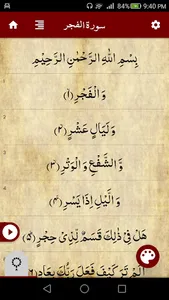 9:40 PM
سورة الفجر
بِسْمِ اللّٰهِ الرَّحْمٰنِ الرَّحِيْمِ
وَالْفَجْرِ ﴿۱﴾
وَلَيَالٍ عَشْرٍ ﴿۲﴾
وَّالشَّفْعِ وَالْوَتْرِ ﴿۳﴾
وَالَّيْلِ اِذَا يَسْرِ ﴿۴﴾
هَلْ فِيْ ذٰلِكَ قَسَمٌ لِّذِيْ حِجْرٍ ﴿۵﴾
اَلَمْ تَرَ كَيْفَ فَعَلَ رَبُّكَ بِعَادٍ ﴿۶﴾